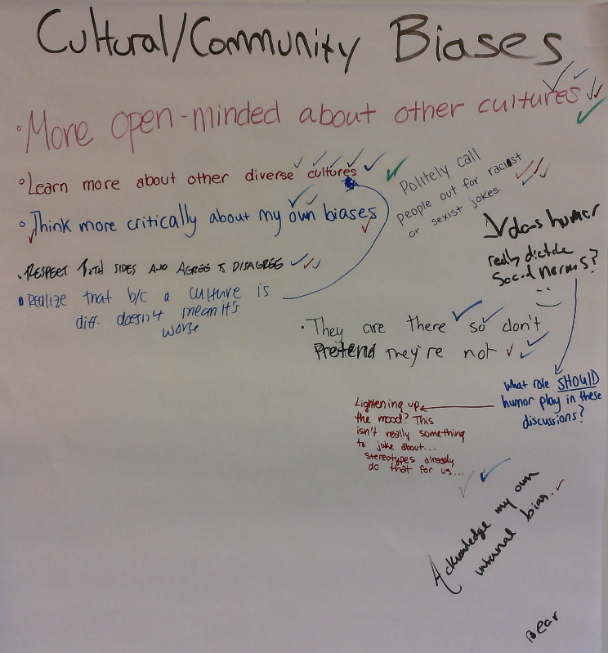 Cultural/Community Biases
• More open-minded about other cultures
• Learn more about other diverse cultures
• Think more critically about my own biases
• RESPECT BOTH SIDES AND AGREE TO DISAGREE
• Realize that b/c a culture is
diff. doesn't mean it's
worse
Politely call
people out for racist
or sexist jokes.
does humor
really dictate
social norms?
• They are there so don't
Pretend they're not
What role SHOULD
humor play in these
discussions?
Lightening up
the mood? This
isn't really something
to joke about...
stereotypes already
do that for us...
Acknowledge my own
internal bias.